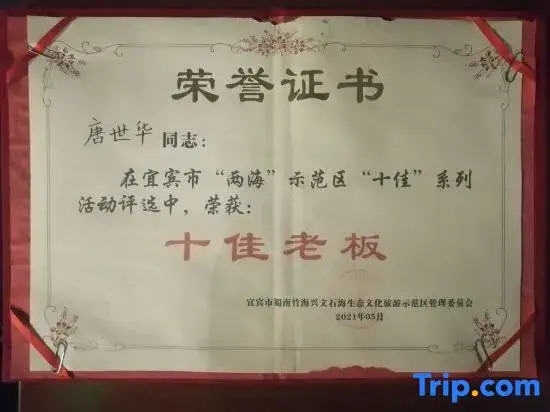 荣誉证书
唐世华 同志：
在宜宾市“两海”示范区“十佳”系列
活动评选中，荣获：
十佳老板
宜宾市蜀南竹海兴文石海生态文化旅游示范区管理委员会
2021年05月
Trip.com